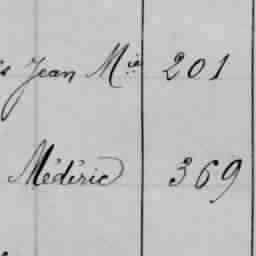 s Jean Mie 201
Médéric 369